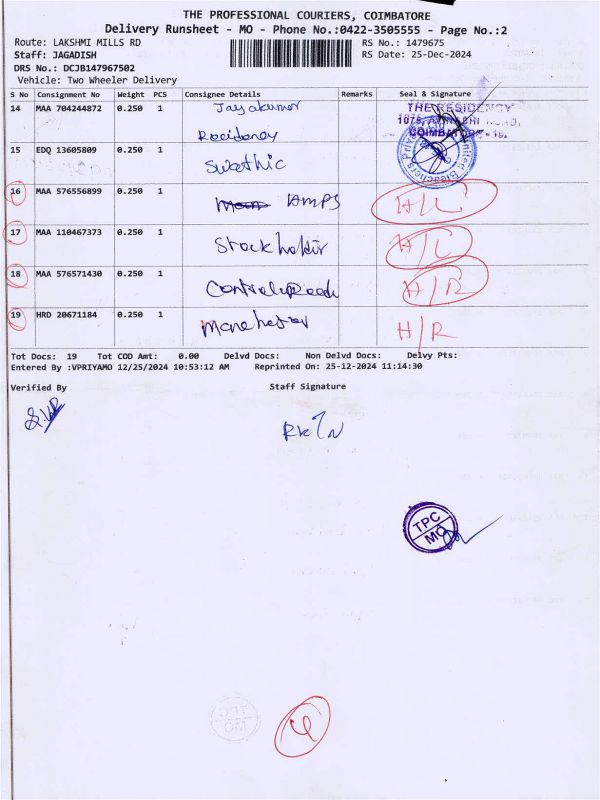 THE PROFESSIONAL COURIERS, COIMBATORE
Delivery Runsheet - MO - Phone No.:0422-3505555 - Page No.:2
Route: LAKSHMI MILLS RD RS No.: 1479675
Staff: JAGADISH RS Date: 25-Dec-2024
DRS No.: DCJB147967502
Vehicle: Two Wheeler Delivery
S No Consignment No Weight PCS Consignee Details Remarks Seal & Signature
14 MAA 704244872 0.250 1 Jayakumar THE RESIDENCY
Residency 1076, AVINASHI ROAD,
COIMBATORE - 18.
15 EDQ 13605809 0.250 1 Swathic
16 MAA 576556899 0.250 1 AMPS H/C
17 MAA 110467373 0.250 1 Stock holdir H/C
18 MAA 576571430 0.250 1 H/R
19 HRD 20671184 0.250 1 H/R
Tot Docs: 19 Tot COD Amt: 0.00 Delvd Docs: Non Delvd Docs: Delvy Pts:
Entered By :VPRIYAMO 12/25/2024 10:53:12 AM Reprinted On: 25-12-2024 11:14:30
Verified By Staff Signature
TPC
MO
TPC
MO
4